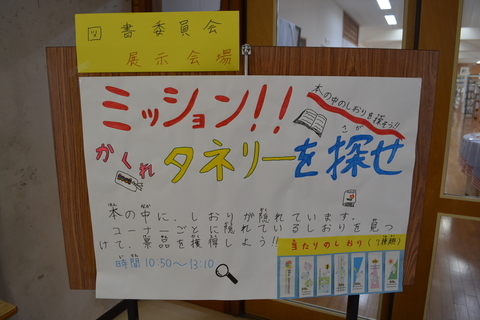 図書委員会
展示会場
ミッション!!
本の中のしおりを探そう!!
かくれタネリーを探せ
さが
本の中に、しおりが隠れています。
コーナーごとに隠れているしおりを見つ
けて、景品を獲得しよう!!
時間 10:50～13:10
当たりのしおり(7種類)